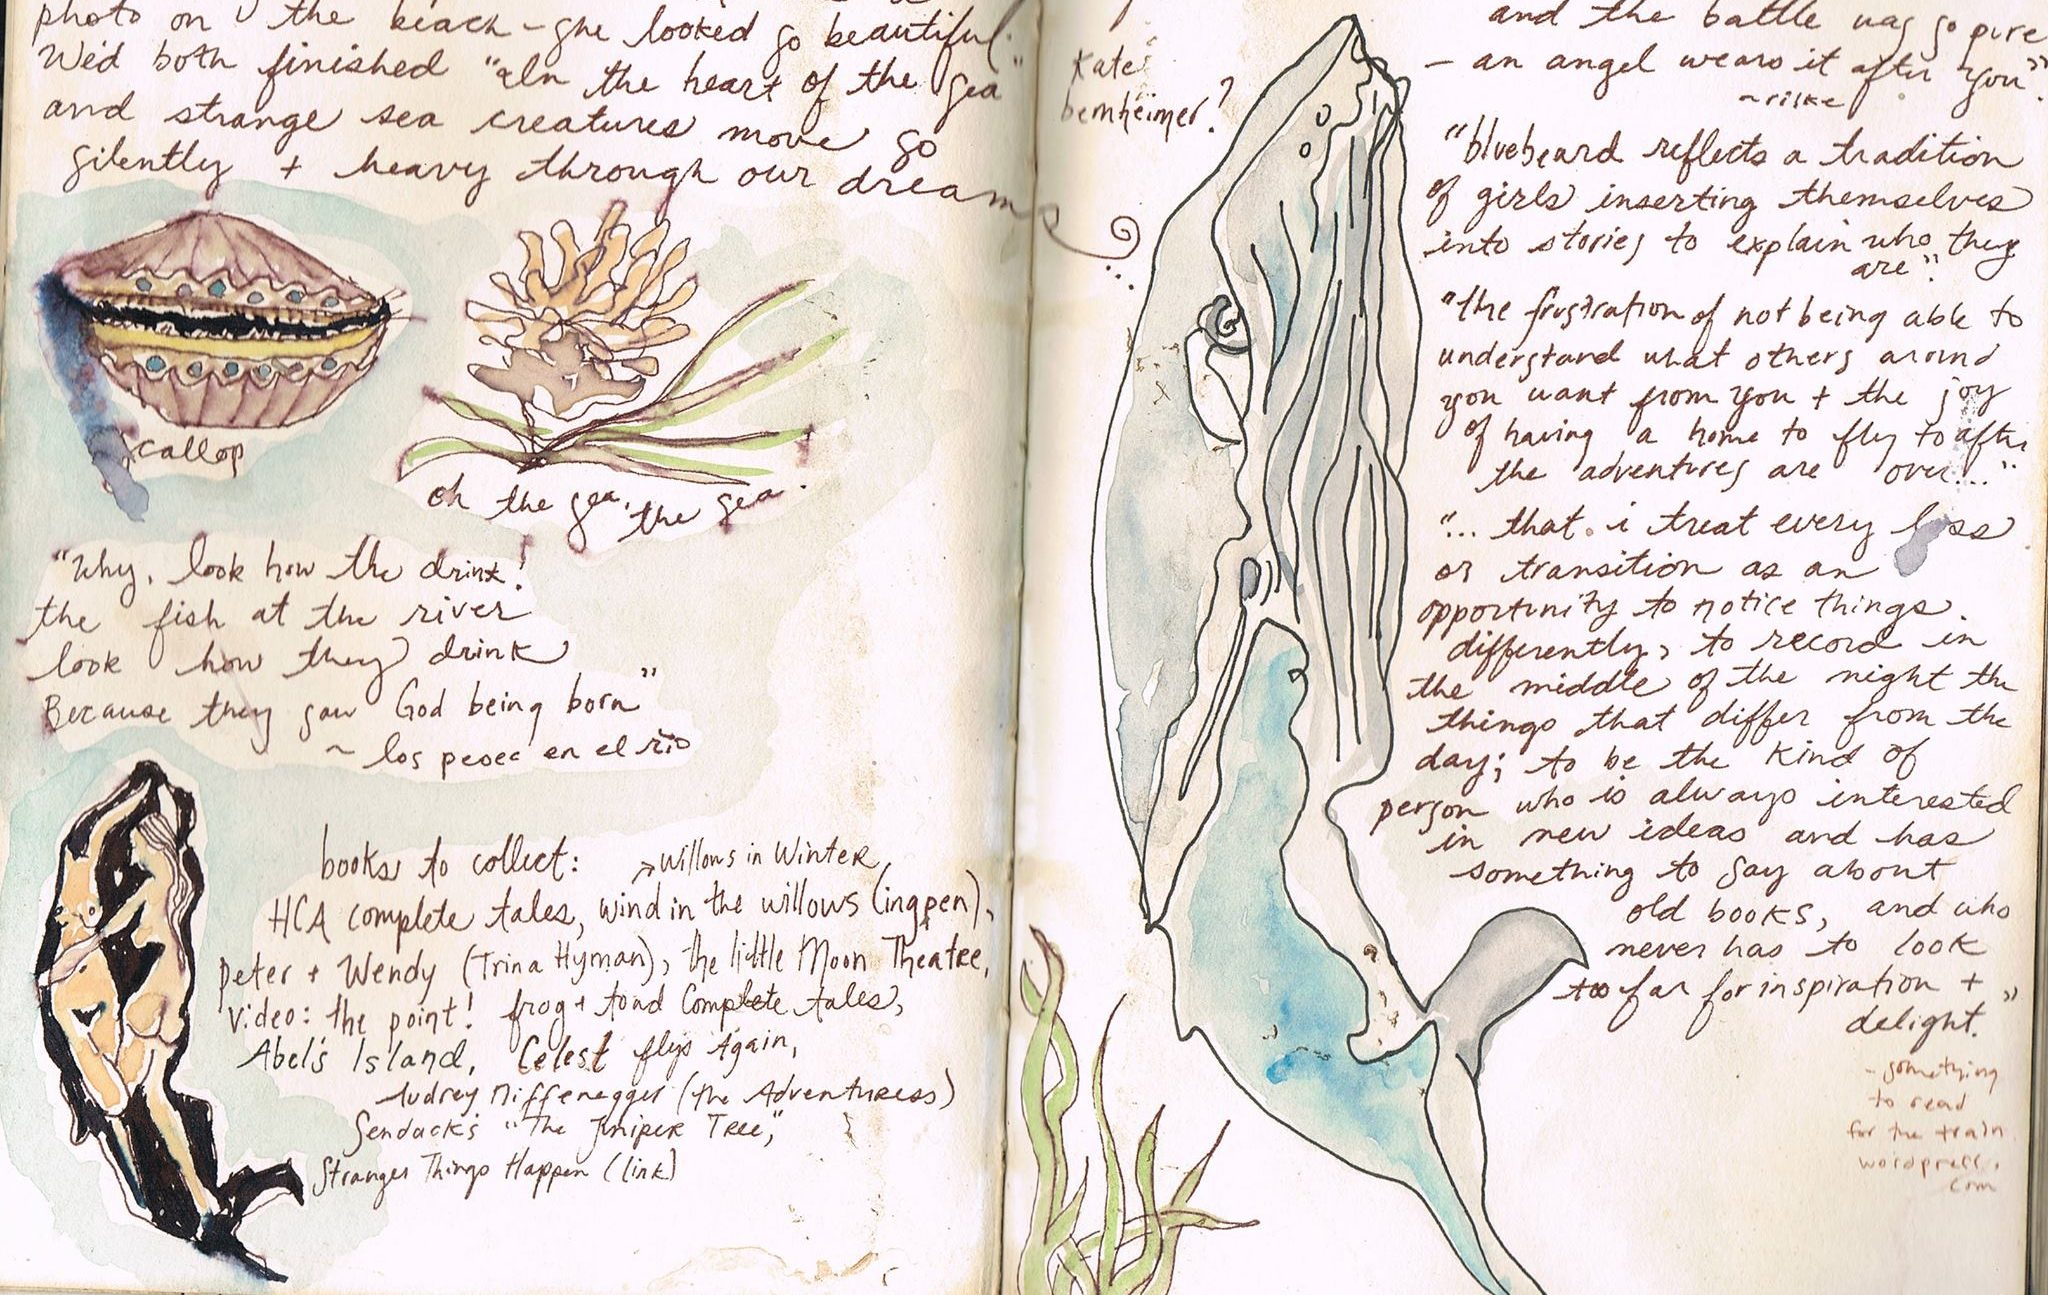 photo on the beach - she looked so beautiful.
We'd both finished "In the heart of the sea"
and strange sea creatures move so
silently + heavy through our dreams
scallop
oh the sea, the sea.
"Why, look how the drink!
the fish at the river
look how they drink
Because they saw God being born"
~ los peces en el río
books to collect:
→ willows in Winter
HCA complete tales, wind in the willows (ingpen),
peter + Wendy (Trina Hyman), the little Moon Theatre,
video: the point! frog + toad Complete tales,
Abel's Island, Celest flys Again,
Audrey Niffenegger (the Adventuress)
Sendack's "The Juniper Tree,"
Stranger Things Happen (link)
Kate
bernheimer?
and the battle was so pure
- an angel wears it after you".
~ rilke
"bluebeard reflects a tradition
of girls inserting themselves
into stories to explain who they
are".
"the frustration of not being able to
understand what others around
you want from you + the joy
of having a home to fly to after
the adventures are over..."
"... that i treat every loss
or transition as an
opportunity to notice things
differently, to record in
the middle of the night the
things that differ from the
day; to be the kind of
person who is always interested
in new ideas and has
something to say about
old books, and who
never has to look
too far for inspiration +
delight."
- something
to read
for the train.
wordpress.
com